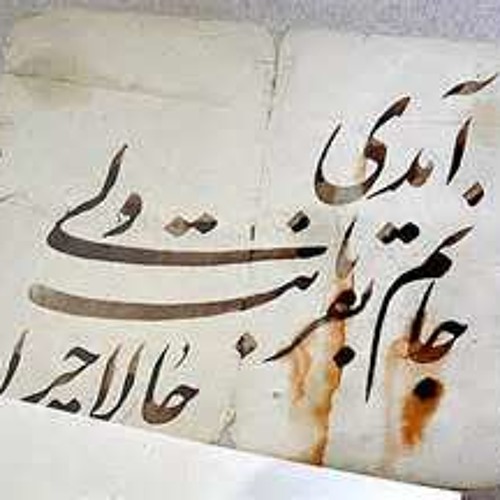 آمدی
جانم بقربانت ولی
حالا چرا